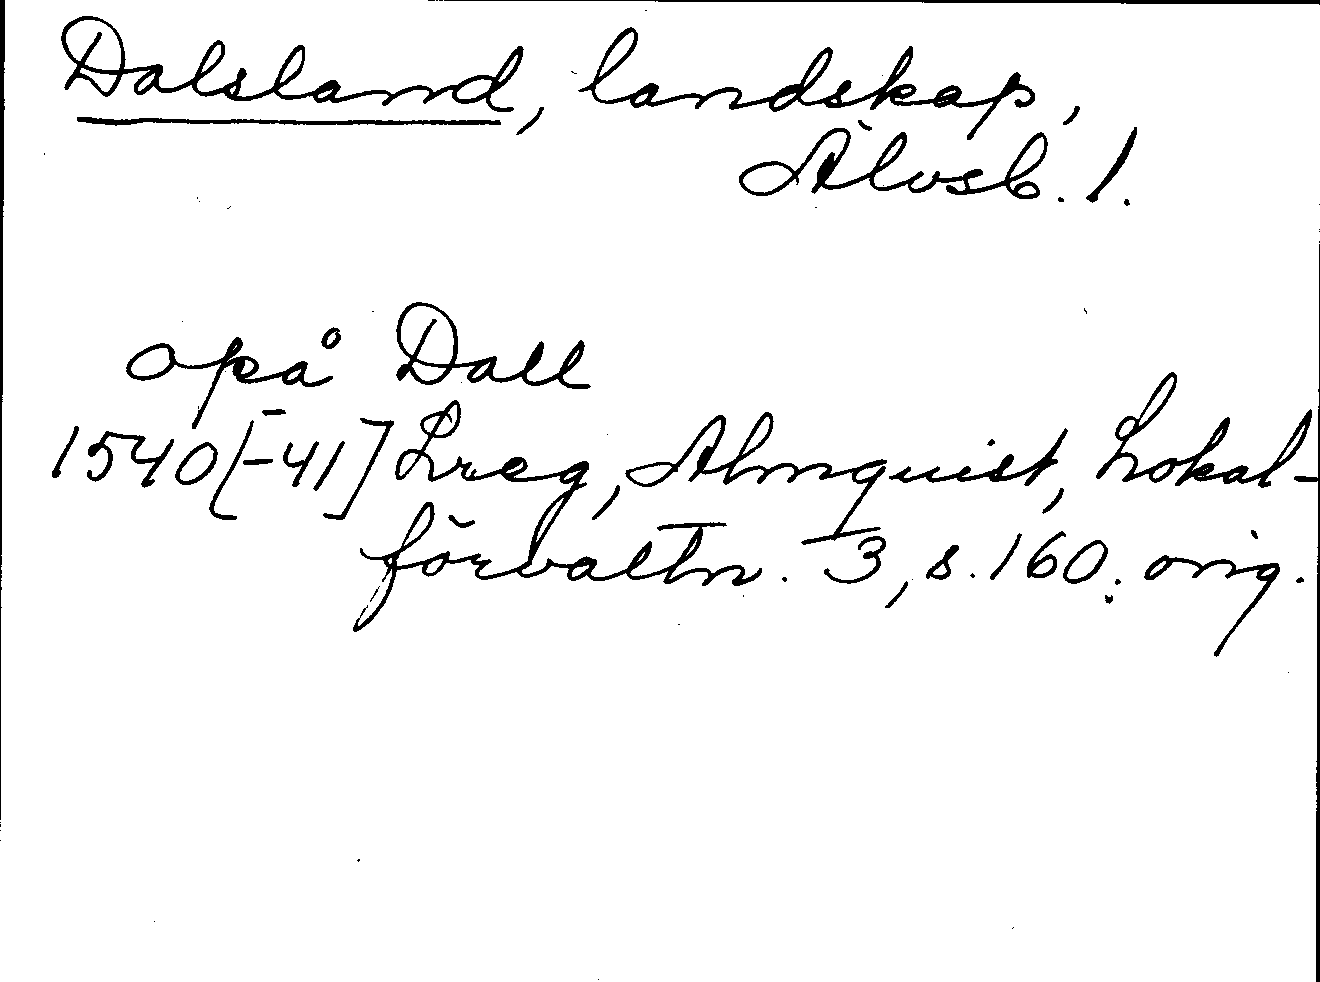 Dalsland, landskap,
Älvsb. l.
opå Dall
1540[-41] Lreg, Almquist, Lokal-
förvaltn. 3, s. 160. orig.